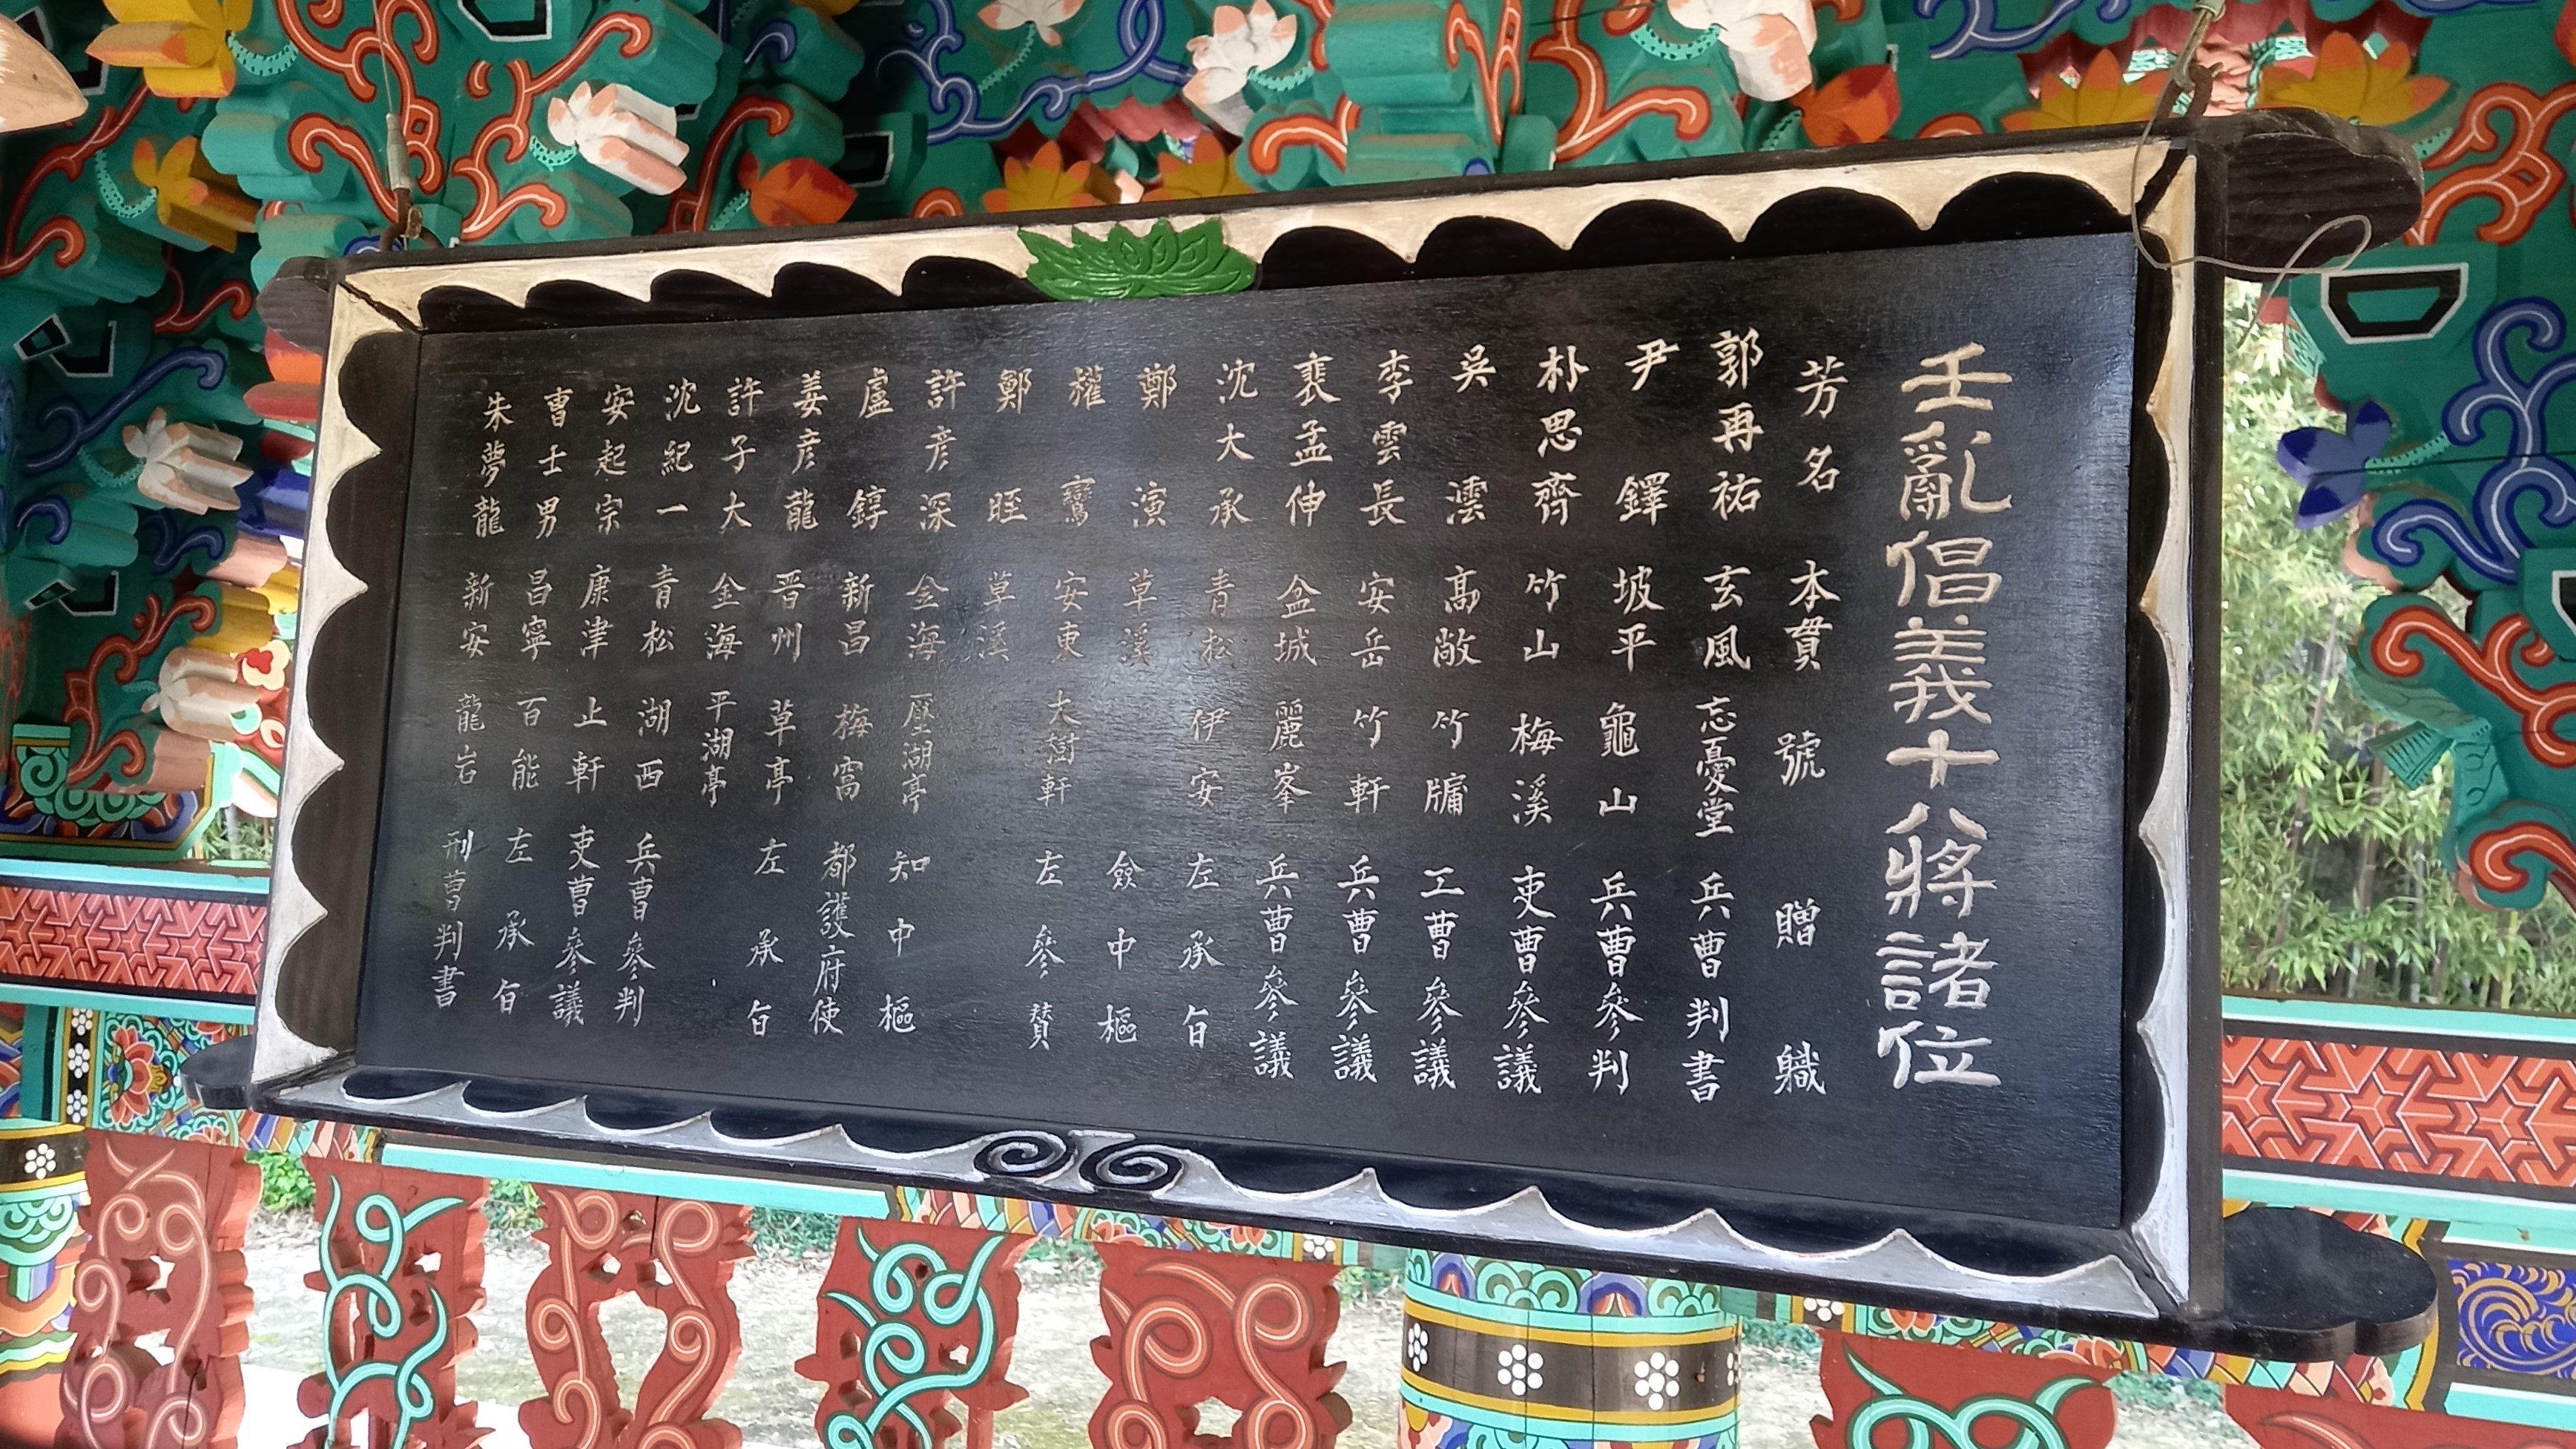 壬亂倡義十八將諸位
芳名 本貫 號 贈 職
郭再祐 玄風 忘憂堂 兵曹判書
尹鐸 坡平 龜山 兵曹參判
朴思齊 竹山 梅溪 吏曹參議
吳澐 高敞 竹牖 工曹參議
李雲長 安岳 竹軒 兵曹參議
裵孟伸 盆城 麗峯 兵曹參議
沈大承 青松 伊安 左承旨
鄭演 草溪 僉中樞
權鸞 安東 大樹軒 左參贊
鄭眰 草溪
許彦深 金海 壓湖亭 知中樞
盧錞 新昌 梅窩 都護府使
姜彦龍 晋州 草亭 左承旨
許子大 金海 平湖亭
沈紀一 青松 湖西 兵曹參判
安起宗 康津 止軒 吏曹參議
曺士男 昌寧 百能 左承旨
朱夢龍 新安 龍岩 刑曹判書